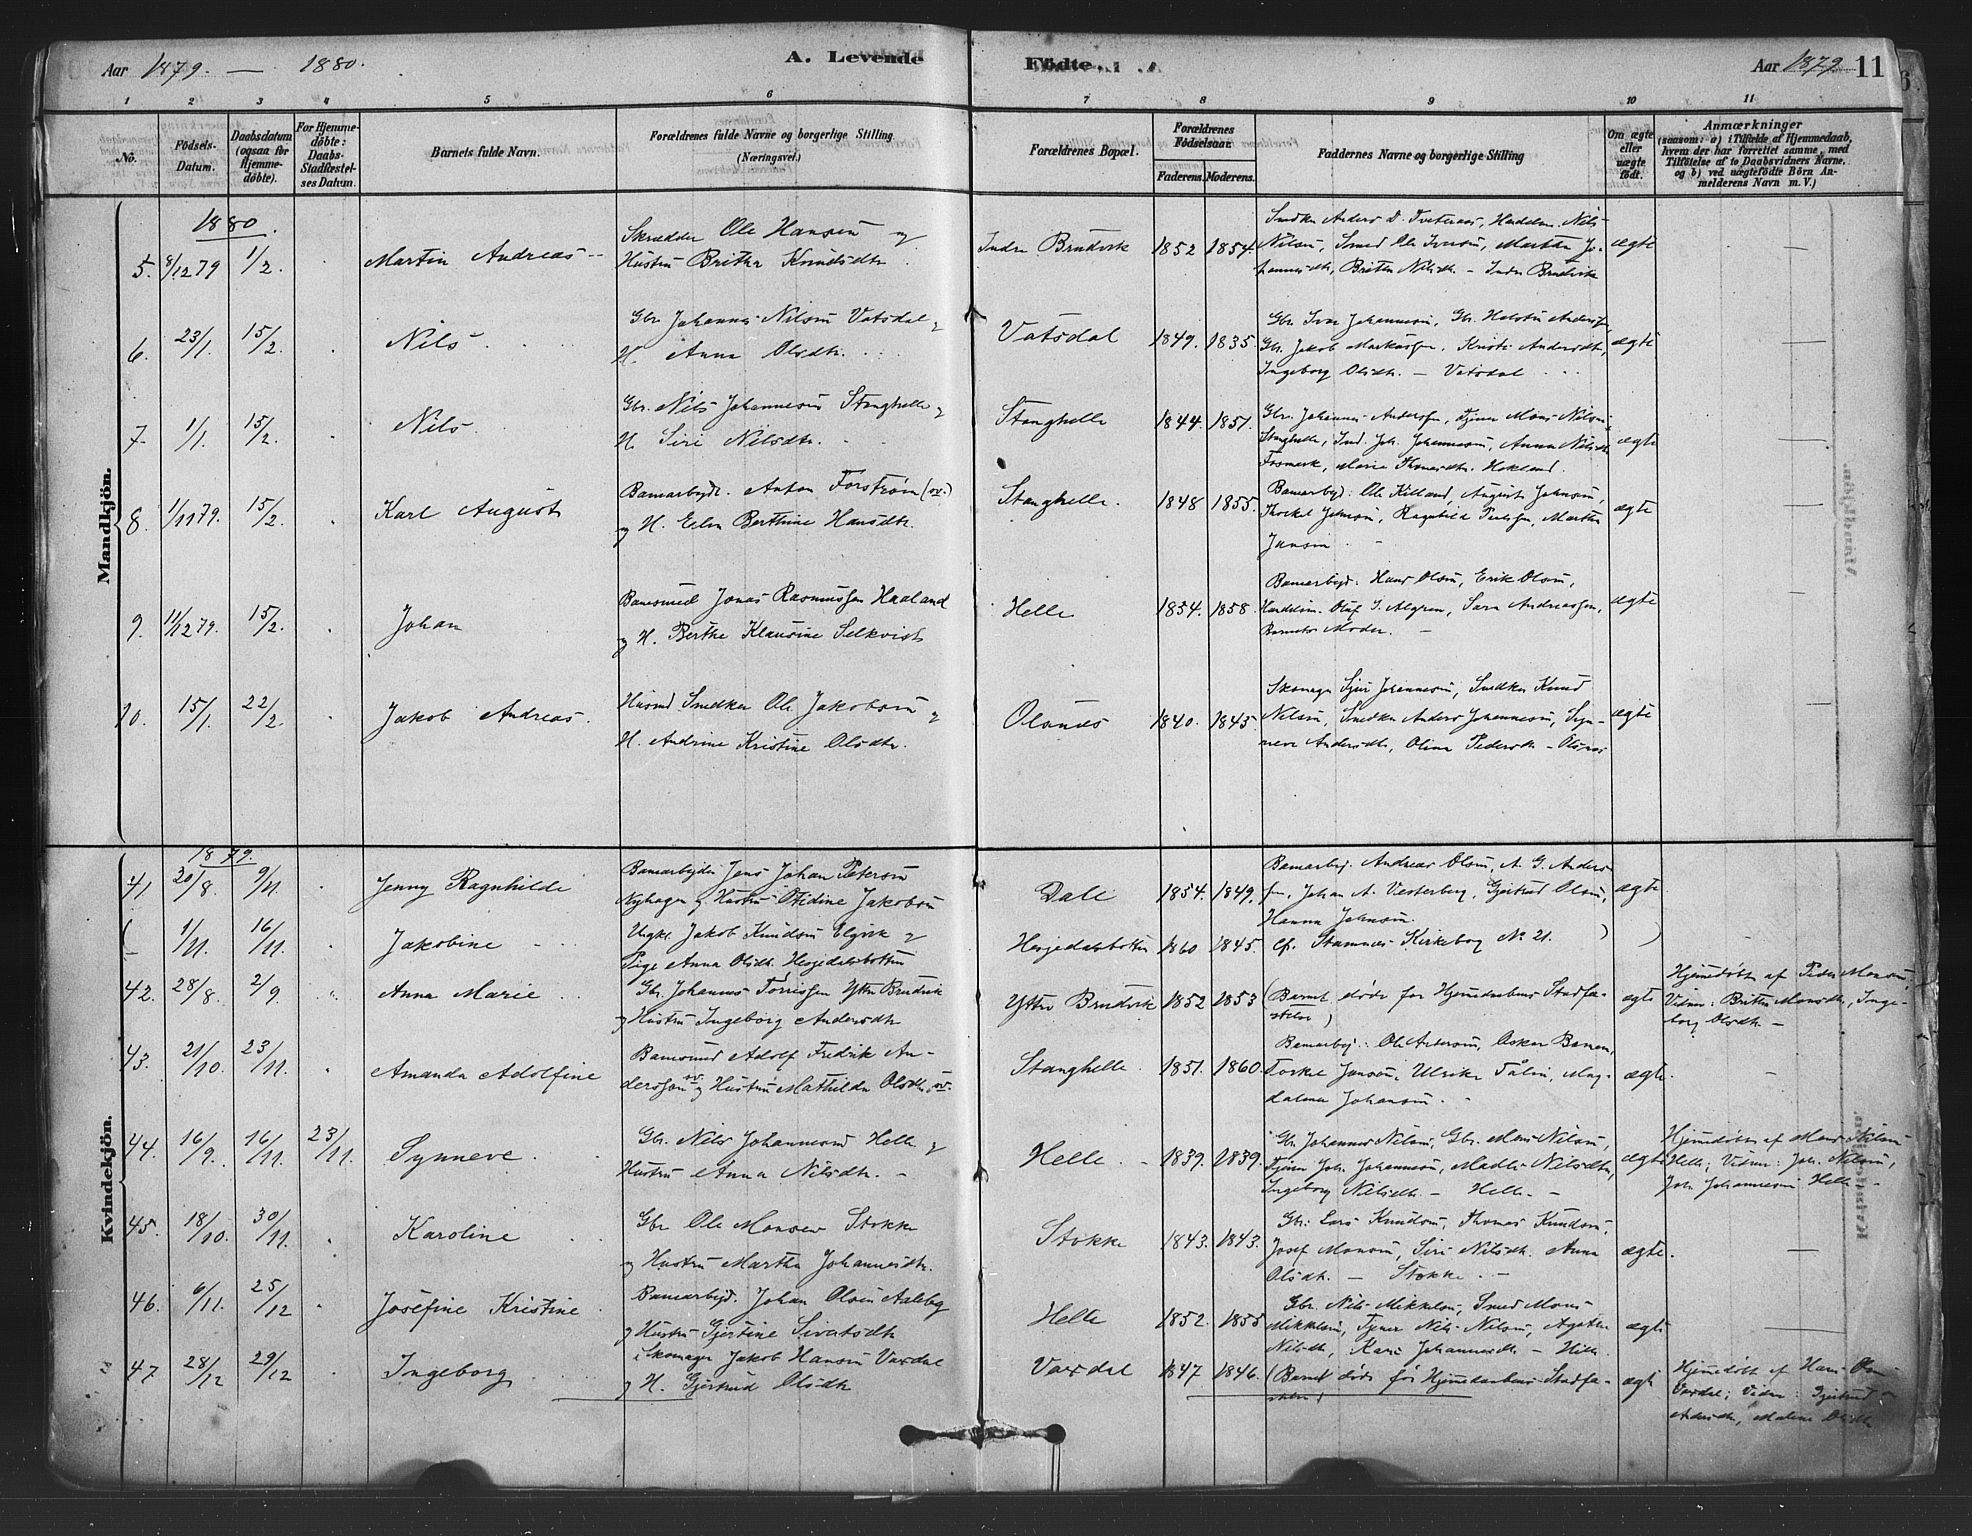 Aar 1879. — 1880. A. Levende Fødte. Aar 1879. 11
1 2 3 4 5 6 7 8 9 10 11
No.
Födsels-Datum.
Daabsdatum (ogsaa for Hjemmedöbte).
For Hjemmedöbte: Daabs-Stadfæstelses Datum.
Barnets fulde Navn.
Forældrenes fulde Navne og borgerlige Stilling.
(Næringsvei.)
Forældrenes Bopæl.
Forældrenes Födselsaar.
Faderens. Moderens.
Faddernes Navne og borgerlige Stilling
Om ægte eller uægte födt.
Anmærkninger
(saasom: a) i Tilfælde af Hjemmedaab, hvem der har forrettet samme, med Tilföielse af to Daabsvidners Navne, og b) ved uægtefödte Börn Anmelderens Navn m. V.)
Mandkjön.
1880.
5. 8/12 79 1/2. Martin Andreas
Skrædder Ole Hansen og
Hustru Britha Knudsdtr.
Indre Bruvik 1852 1854.
Smdkr Anders D. Tveteraas, Nils
Nilsen, Smed Ole Iversen, Martha Jo-
hannesdtr, Britha Nilsdtr. — Indre Bruvik
ægte —
6. 23/1. 15/2. Nils.
Gbr. Johannes Nilsen Vatsdal og
H. Anna Olsdtr.
Vatsdal 1849. 1835.
Gbr. Ivar Johannesen, Gbr. Andersen,
Gbr. Jakob Markussen, Kristi Andersdtr,
Ingeborg Olsdtr. — Vatsdal
ægte —
7. 1/1. 15/2. Nils.
Gbr. Nils Johannesen Stanghelle og
H. Siri Nilsdtr.
Stanghelle 1844. 1851.
Gbr. Johannes Andersen, Tjener Mons Nilsen
Stanghelle, Ind. Joh. Johannesen, Anna Nilsdtr
Fosmark, Marie Thomasdtr.
ægte —
8. 1/11 79. 15/2. Karl August
Banearbeidr. Anton Forstrøm (sv.)
og H. Elen Berthine Hansdtr.
Stanghelle. 1848 1855.
Banearbeid: Ole Killand, August Johnsen,
Johnsen, Ragnhild Pedersen, Martha
Jansen.
ægte —
9. 11/12 79. 15/2. Johan
Banesmed Jonas Rasmussen Haaland
og H. Berthe Klausine Selkvist
Helle 1854. 1858.
Banearbeid: Hans Olsen, Erik Olsen,
Handelsm. Olaf J. Algren, Sara Andreassen,
Barnets Moder. —
ægte —
10. 15/1. 22/2. Jakob Andreas.
Husmd Smedker Ole Jakobsen og
H. Andrine Kristine Olsdtr.
Olsnæs 1840. 1845.
Skomager Sjur Johannesen, Smedker Knud
Nilsen, Smedker Anders Johannesen, Syn-
neve Andersdtr, Olina Pedersdtr — Olsnæs
ægte —
Kvindekjön.
1879.
41. 20/8. 9/11. Jenny Ragnhilde
Banearbeider Jens Johan Petersen
Nyhagen og Hustru Otidine Jakobsen
Dale 1854. 1849.
Banearbej. Andreas Olsen, A. G. Anders-
sen, Johan A. Vesterberg, Gjertrud Olsen,
Hanna Johnsen.
ægte.
(— 1/11. 16/11. Jakobine
Ungkr. Jakob Knudsen Elgvik og
Pige Anna Olsdtr. Hesjedalsbotten
Hesjedalsbotten 1860 1845.
Cf. Stamnes Kirkebog No 21. )
42. 28/8. 2/9. Anna Marie
Gbr. Johannes Torrissen Yttre Bruvik
og Hustru Ingeborg Andersdtr
Yttre Bruvik 1852 1853
(Barnet døde før Hjemdaabens Stadfæ-
stelse)
ægte
Hjemdøbt af Peder Monsen,
Vidner: Britha Monsdtr, Inge-
borg Olsdtr —
43. 21/10. 23/11. Amanda Adolfine
Banesmed Adolf Fredrik An-
dersson sv. og Hustru Mathilda Olsdtr, sv.
Stanghelle. 1851. 1860.
Banearbej: Ole Askar
Torkel Jansen, Ulrike Mag-
dalena Johansen.
ægte. —
44. 16/9. 16/11. 23/11. Synneve.
Gbr. Nils Johannesen Helle og
Hustru Anna Nilsdtr. —
Helle. 1839. 1839.
Gbr. Johannes Nilsen, Gbr. Mons Nilsen,
Tjener Joh. Johannesen, Madli Nilsdtr,
Ingeborg Nilsdtr — Helle. —
ægte
Hjemdøbt af Mons Nilsen
Helle; Vidner: Joh. Nilsen,
Joh. Johannesen Helle —
45. 18/10. 30/11. Karoline
Gbr Ole Monsen Stokke
og Hustru Martha Johannesdtr.
Stokke 1843. 1843.
Gbr: Lars Knudsen, Thomas Knudsen,
Josef Monsen, Siri Nilsdtr. Anna
Olsdtr. — Stokke. —
ægte. —
46. 6/11. 25/12 Josefine Kristine
Banearbejd. Johan Olsen Aaleby
og Hustru Gjertine Sivertsdtr
Helle 1852. 1855
Gbr. Nils Mikkelsen, Smed Mons
Mikkelsen, Tjener Nils Nilsen, Agatha
Nilsdtr, Kari Johannesdtr — Helle.
ægte —
47 28/12 29/12 Ingeborg
Skomager Jakob Hansen Vaxdal
og H. Gjertrud Olsdtr
Vaxdal 1847 1846.
(Barnet døde før Hjemdaabens Stadfæ-
stelse)
ægte
Hjemdøbt af Hans Olsen
Vaxdal; Vidner: Gjertrud
Andersdtr, Malene Olsdtr